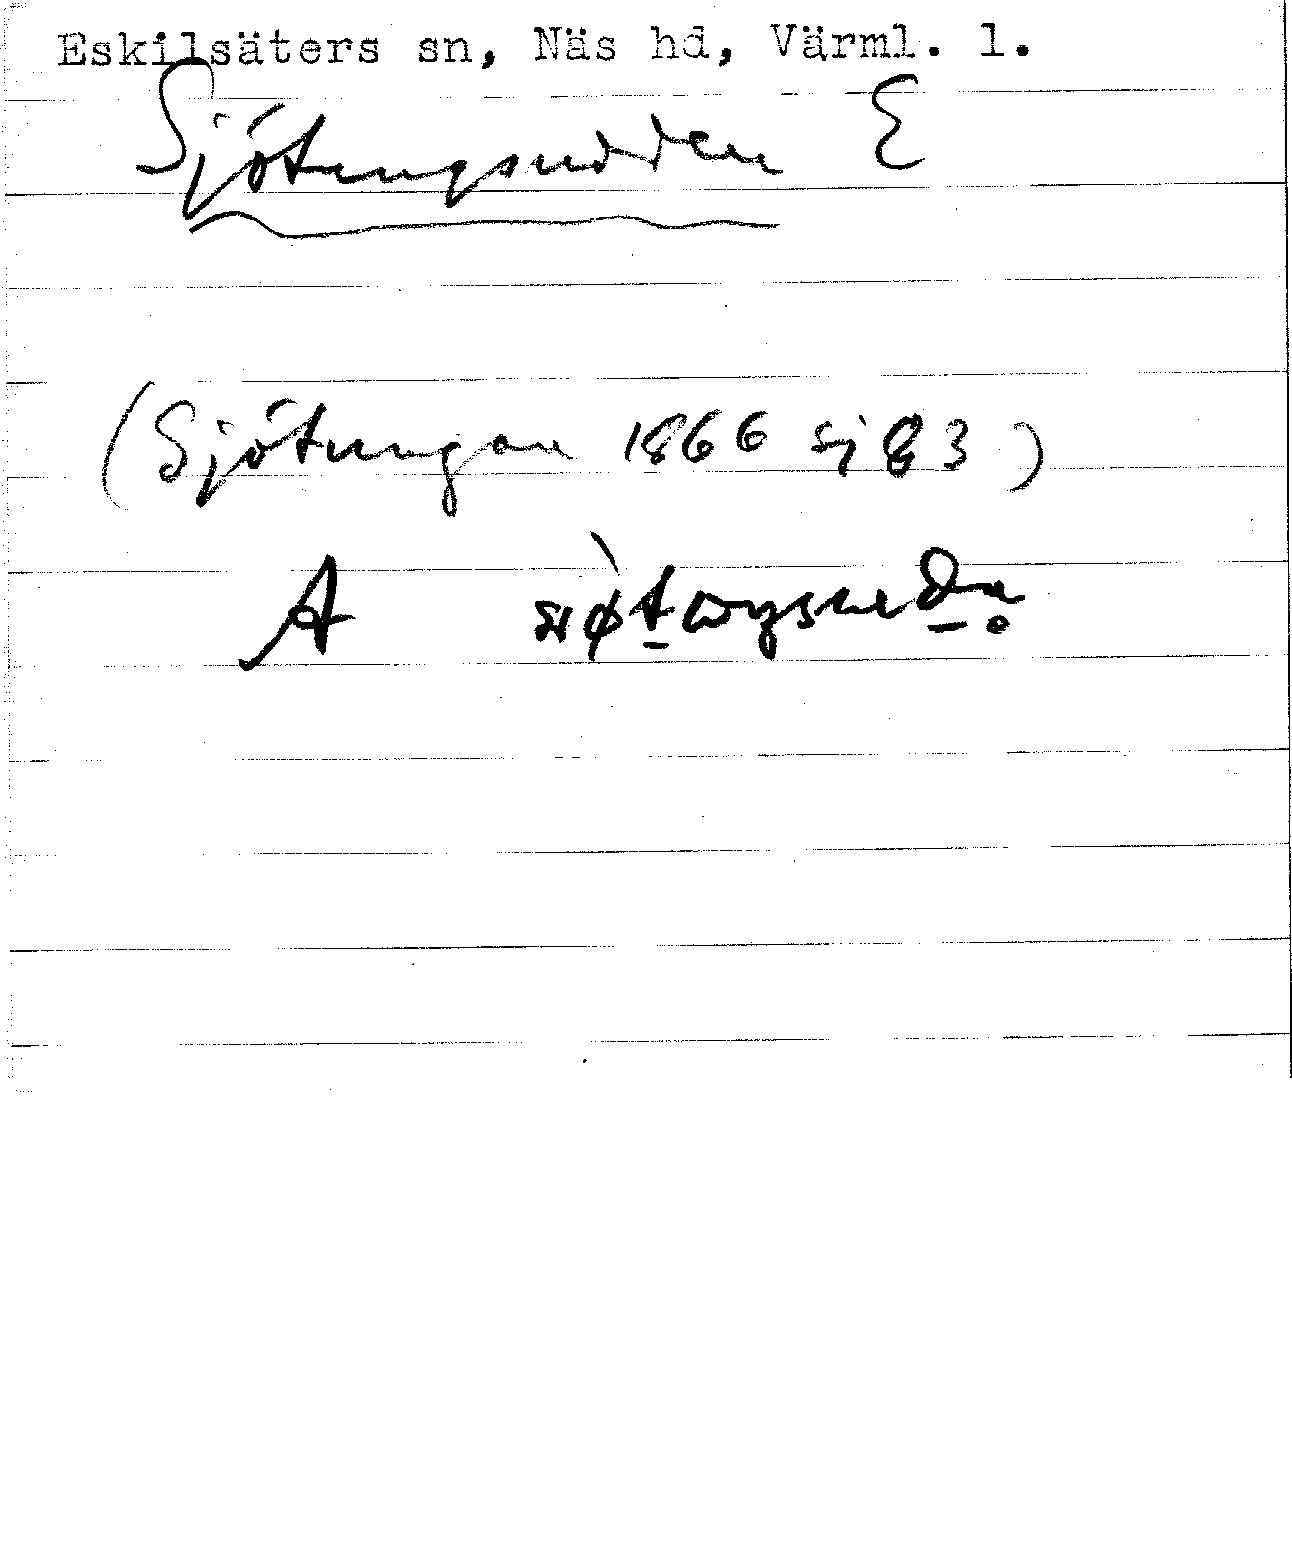 Eskilsäters sn, Näs hd, Värml. l.
Sjötungsudden E
(Sjötungan 1866 sj 83)
A